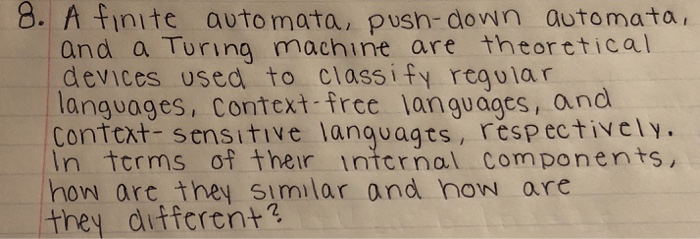 8. A finite automata, push-down automata,
and a Turing machine are theoretical
devices used to classify regular
languages, context-free languages, and
context-sensitive languages, respectively.
In terms of their internal components,
how are they similar and how are
they different?